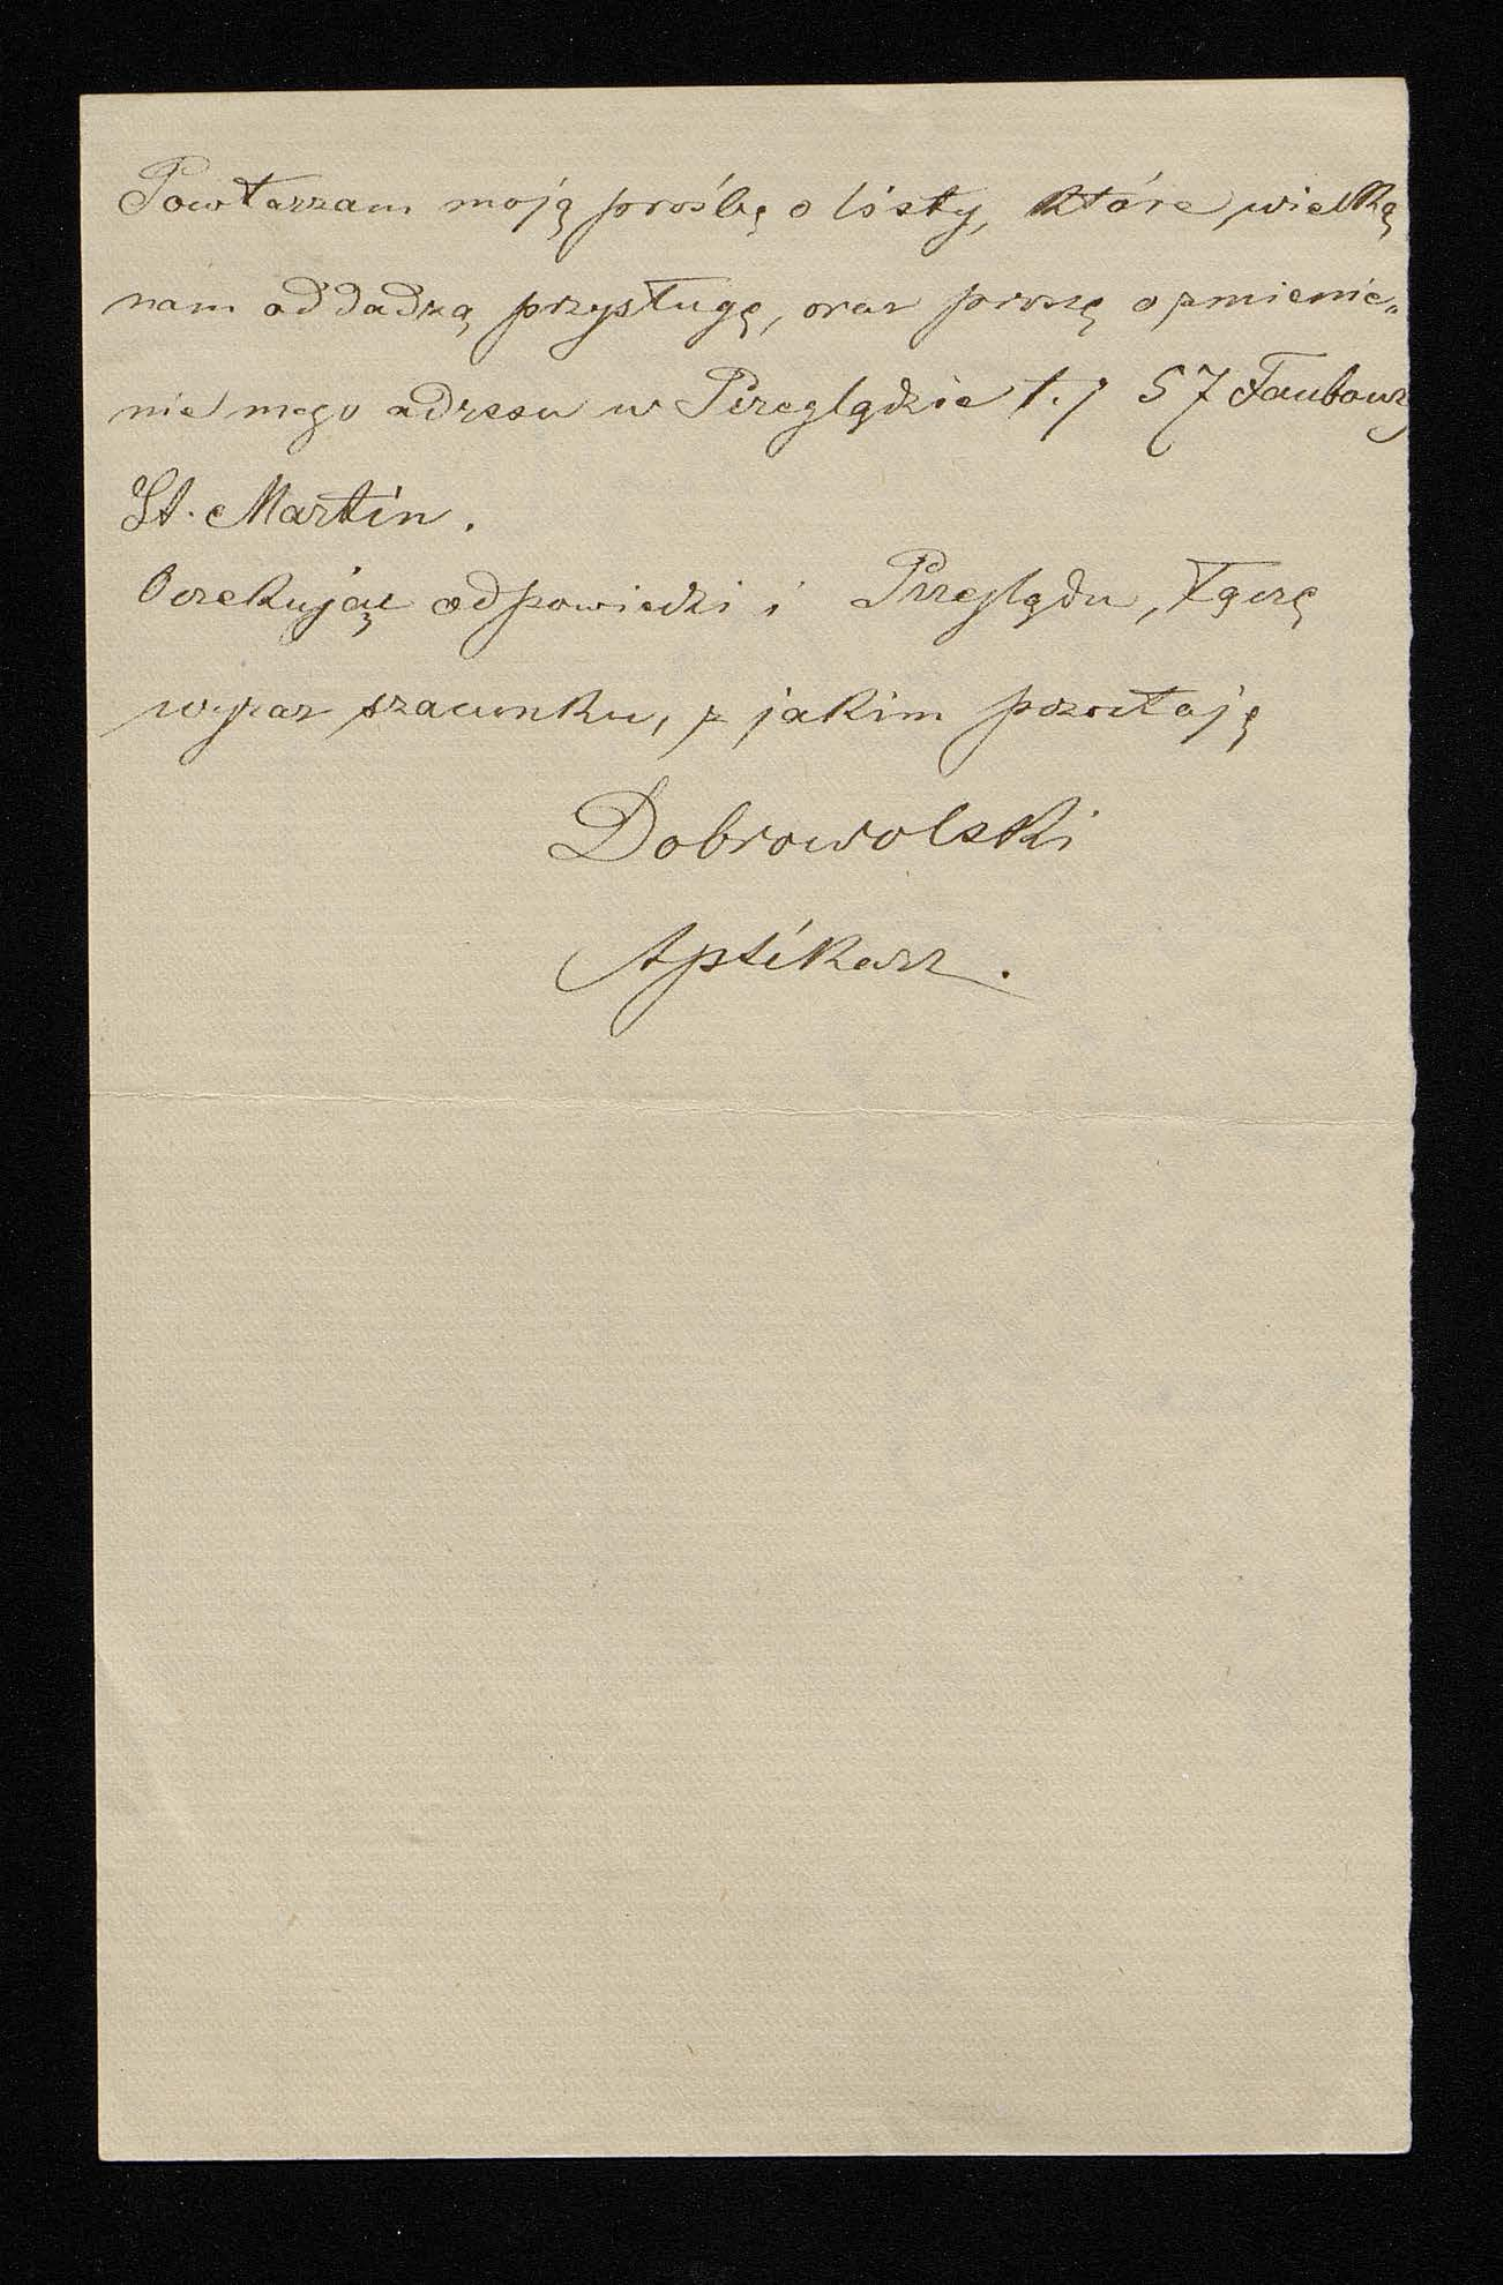 Powtarzam moją prośbę o listy, które wielką
nam oddadzą przysługę, oraz proszę o zmienie„
nie mego adresu w Przeglądzie t. j 57 Faubourg
St. Martin.
Oczekując odpowiedzi i Przeglądu, łączę
wyraz szacunku, z jakim pozostaję
Dobrowolski
Aptikarz.